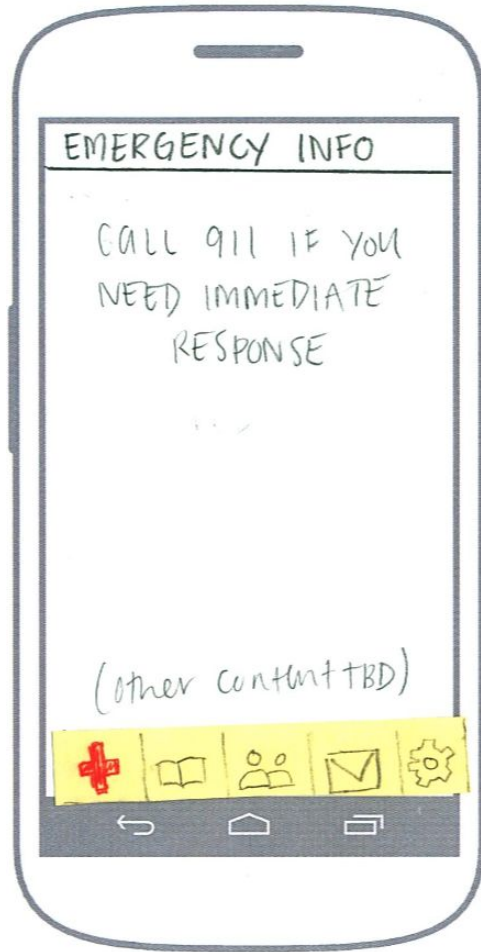 EMERGENCY INFO
CALL 911 IF YOU
NEED IMMEDIATE
RESPONSE
(other content TBD)